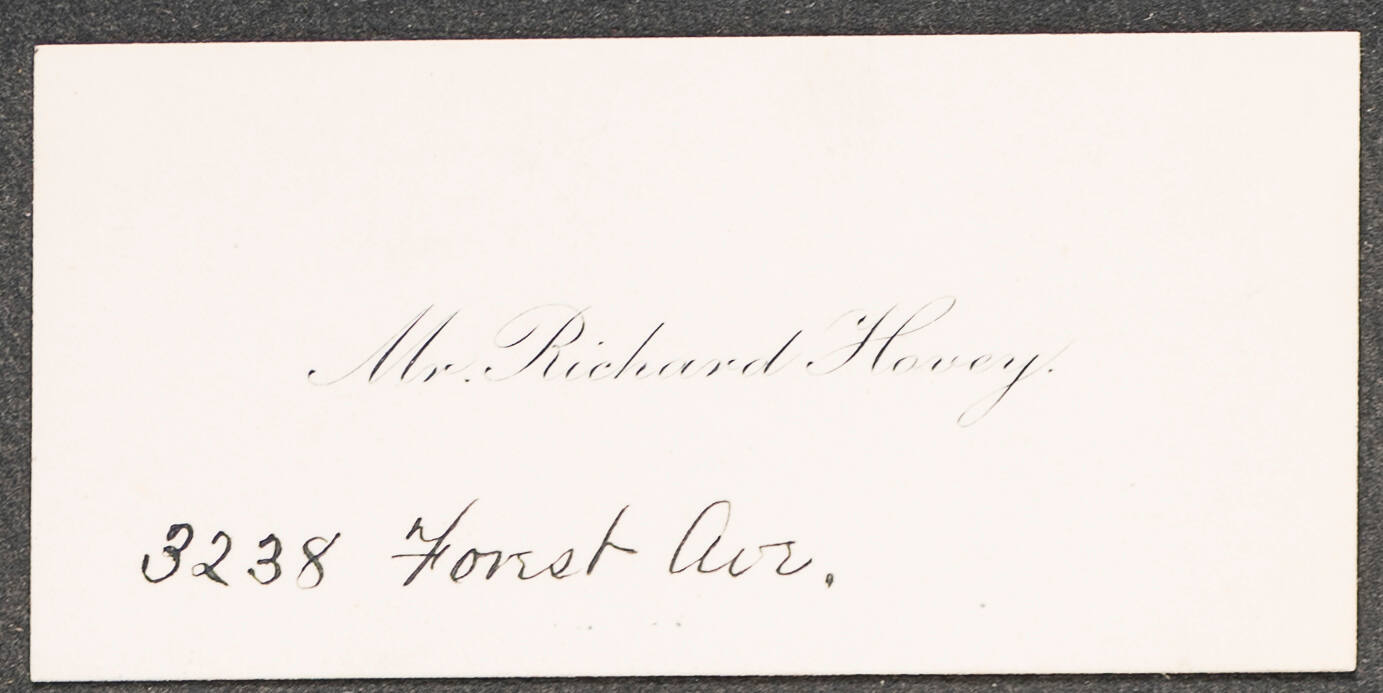 Mr. Richard Hovey.
3238 Forest Ave.